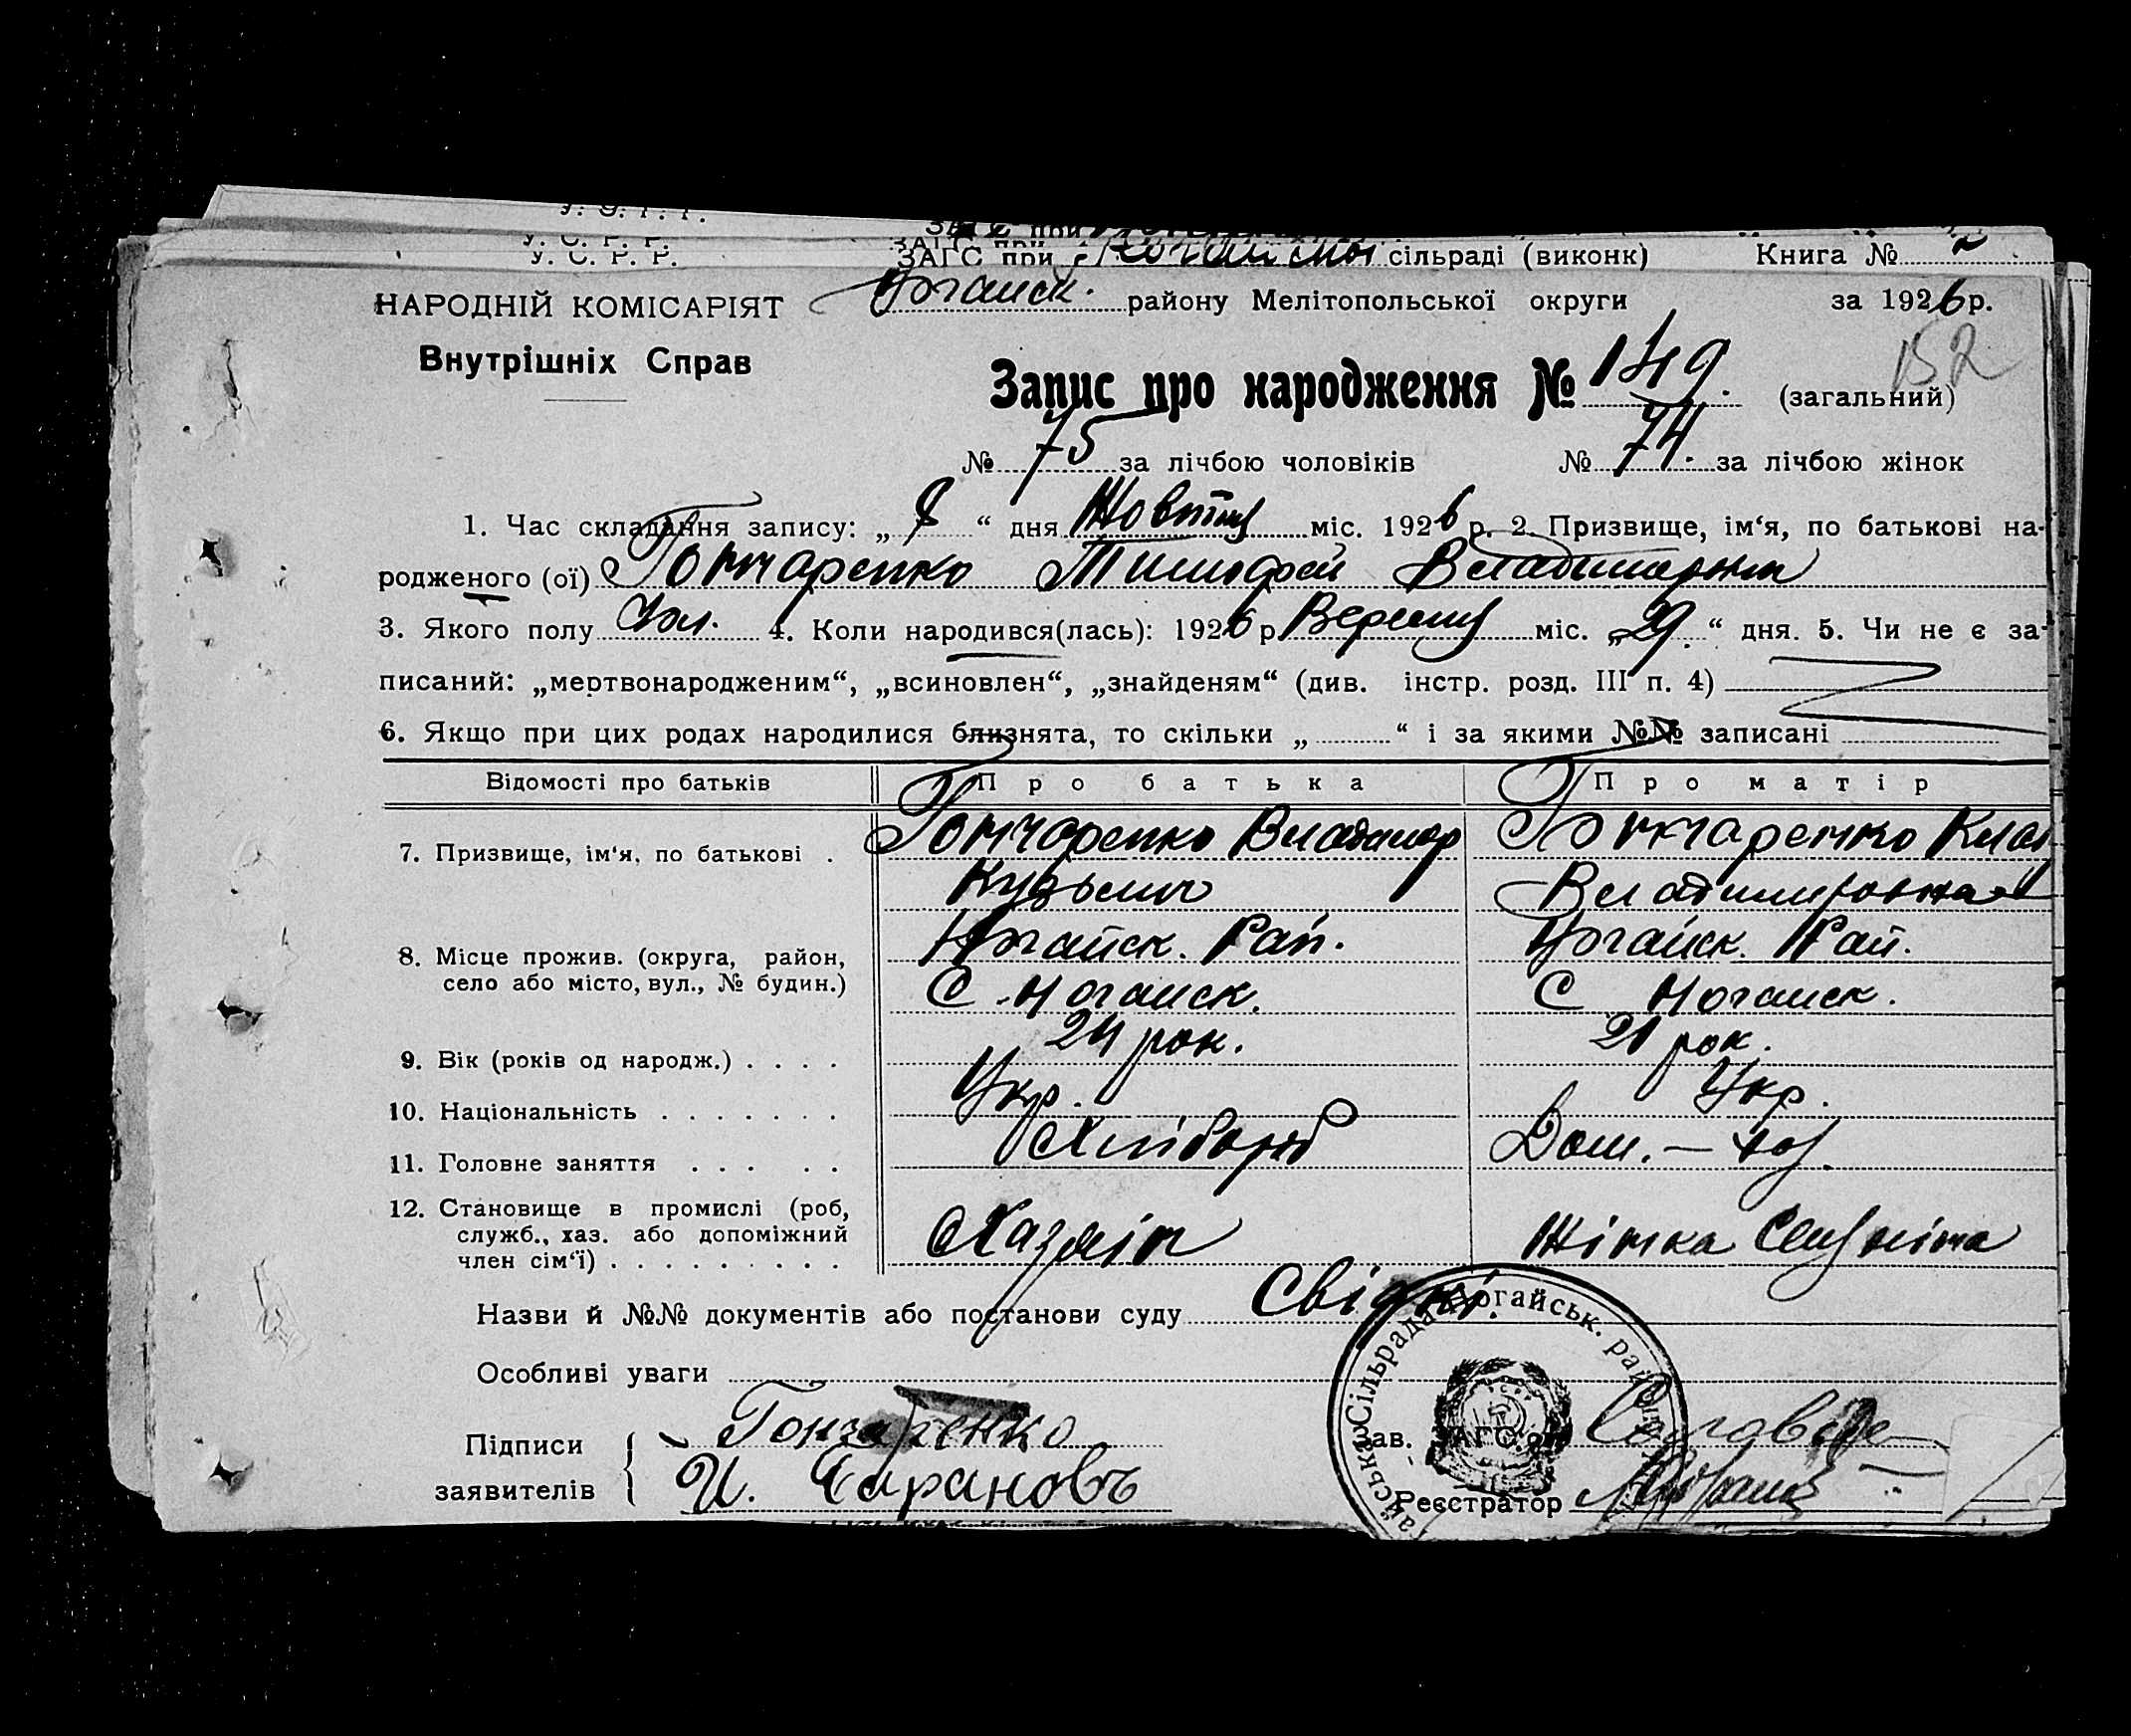 У. С. Р. Р.
ЗАГС при сільраді (виконк) Книга № 2
НАРОДНІЙ КОМІСАРІЯТ
Ногайск. району Мелітопольської округи за 1926 р.
Внутрішніх Справ
152
Запис про народження № 149. (загальний)
№ 75 за лічбою чоловіків № 74. за лічбою жінок
1. Час складання запису: „ 8 “ дня Жовтня міс. 1926 р. 2. Призвище, ім‘я, по батькові на-
родженого (ої) Гончаренко Тимофей
3. Якого полу Чол. 4. Коли народився(лась): 1926 р. Вересня міс. „29“ дня. 5. Чи не є за-
писаний: „мертвонародженим“, „всиновлен“, „знайденям“ (див. інстр. розд. III п. 4)
6. Якщо при цих родах народилися близнята, то скільки „ “ і за якими №№ записані
Відомості про батьків Про батька Про матір
7. Призвище, ім‘я, по батькові . Гончаренко Владимир Гончаренко
Кузьмич Владимировна
8. Місце прожив. (округа, район, Ногайск. Рай. Ногайск. Рай.
село або місто, вул., № будин.) С. Ногайск. С Ногайск.
9. Вік (років од народж.) . . . . 24 рок. 21 рок.
10. Національність . . . . . . . Укр. Укр.
11. Головне заняття . . . . . Хлібороб Дом. — хоз.
12. Становище в промислі (роб,
служб., хаз. або допоміжний Хазяін Жінка
член сім‘ї) . . . . . . . . .
Назви й №№ документів або постанови суду Свідкі.
Особливі уваги
Підписи Гончаренко Зав. ЗАГС‘ом
заявителів И. Таранов Реєстратор
Сільрада Ногайськ. рай